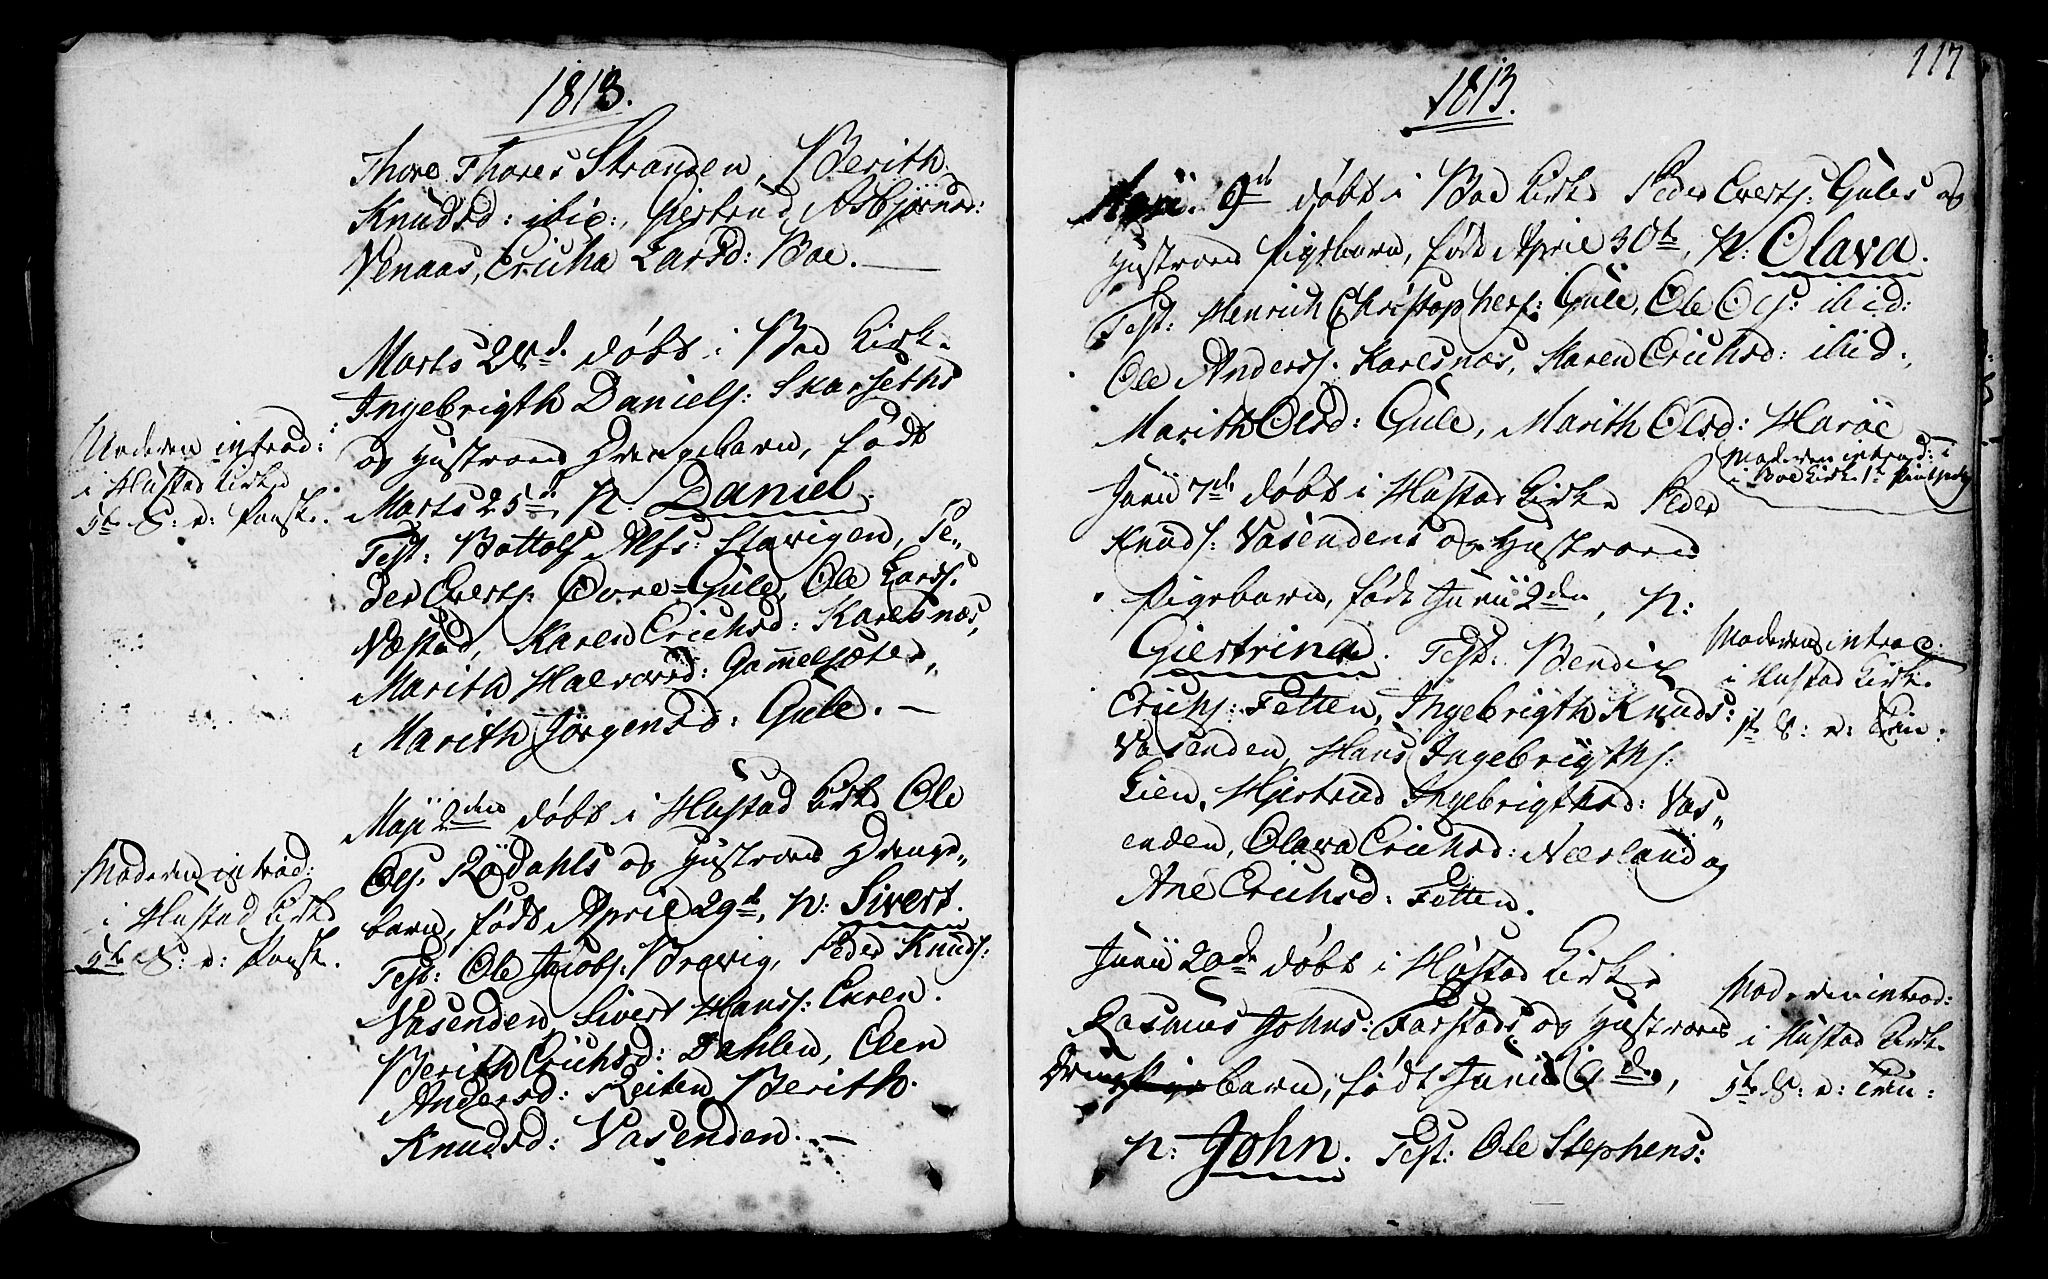 1813.
Thore Thores Stranden, Berith
Knudsd: ibid:, Giertrud Asbjørnsd:
Venaas, Erichа Larsd: Boe. —
Marts 28de døbt i Boe Kirke
Ingebrigth Daniels: Skarseths
og Hustroes Drengebarn, født
Marts 25de, N. Daniel.
Test: Bottolf Alfs: Stavigen, Pe-
der Everts: Øvre-Gule, Ole Lars:
Næstad, Karen Erichsd: Karlsnæs,
Marith Halvord: Gammelsæter,
Marith Jørgensd: Gule. —
Moderen introd:
i Hustad Kirke
5te S: e: Paaske.
Maji 2den døbt i Hustad Kirke Ole
Ols: Rødahls og Hustroes Drenge-
barn, født April 29de, N: Sivert.
Test: Ole Jacobs: Brevig, Peder Knuds:
Vasenden, Sivert Hans: Eeren.
Berith Erichsd: Dahlen, Elen
Andersd: Reiten, Berith
Knudsd: Vasenden. —
Moderen introd:
i Hustad Kirke
5te S: e: Paaske.
117
1813.
Maji 9de døbt i Boe Kirke Peder Everts: Gules og
Hustroes Pigebarn, født April 30te, N: Olava.
Test: Henrich Christophers: Gule, Ole Ols: ibid:
Ole Anders: Karlsnæs, Karen Erichsd: ibid.,
Marith Olsd: Gule, Marith Olsd: Harøe
Moderen introd:
i Boe Kirke 1te Pintsedag
Junii 7de døbt i Hustad Kirke Peder
Knuds: Vasendens og Hustroes
Pigebarn, født Junii 2den, N:
Giertrina. Test: Bendix
Erichs: Fetten, Ingebrigth Knuds:
Vasenden, Hans Ingebrigths:
Lien, Hjertrud Ingebrigthsd: Vas-
enden, Olava Erichsd: Nærland og
Ane Erichsd: Fetten.
Moderen introd.
i Hustad Kirke
1te S: e: Trin:
Junii 20de døbt i Hustad Kirke
Rasmus Johns: Farstads og Hustroes
Drengebarn, født Junii de,
N: John. Test: Ole Stephens:
Moderen introd:
i Hustad Kirke
5te S: e: Trin: